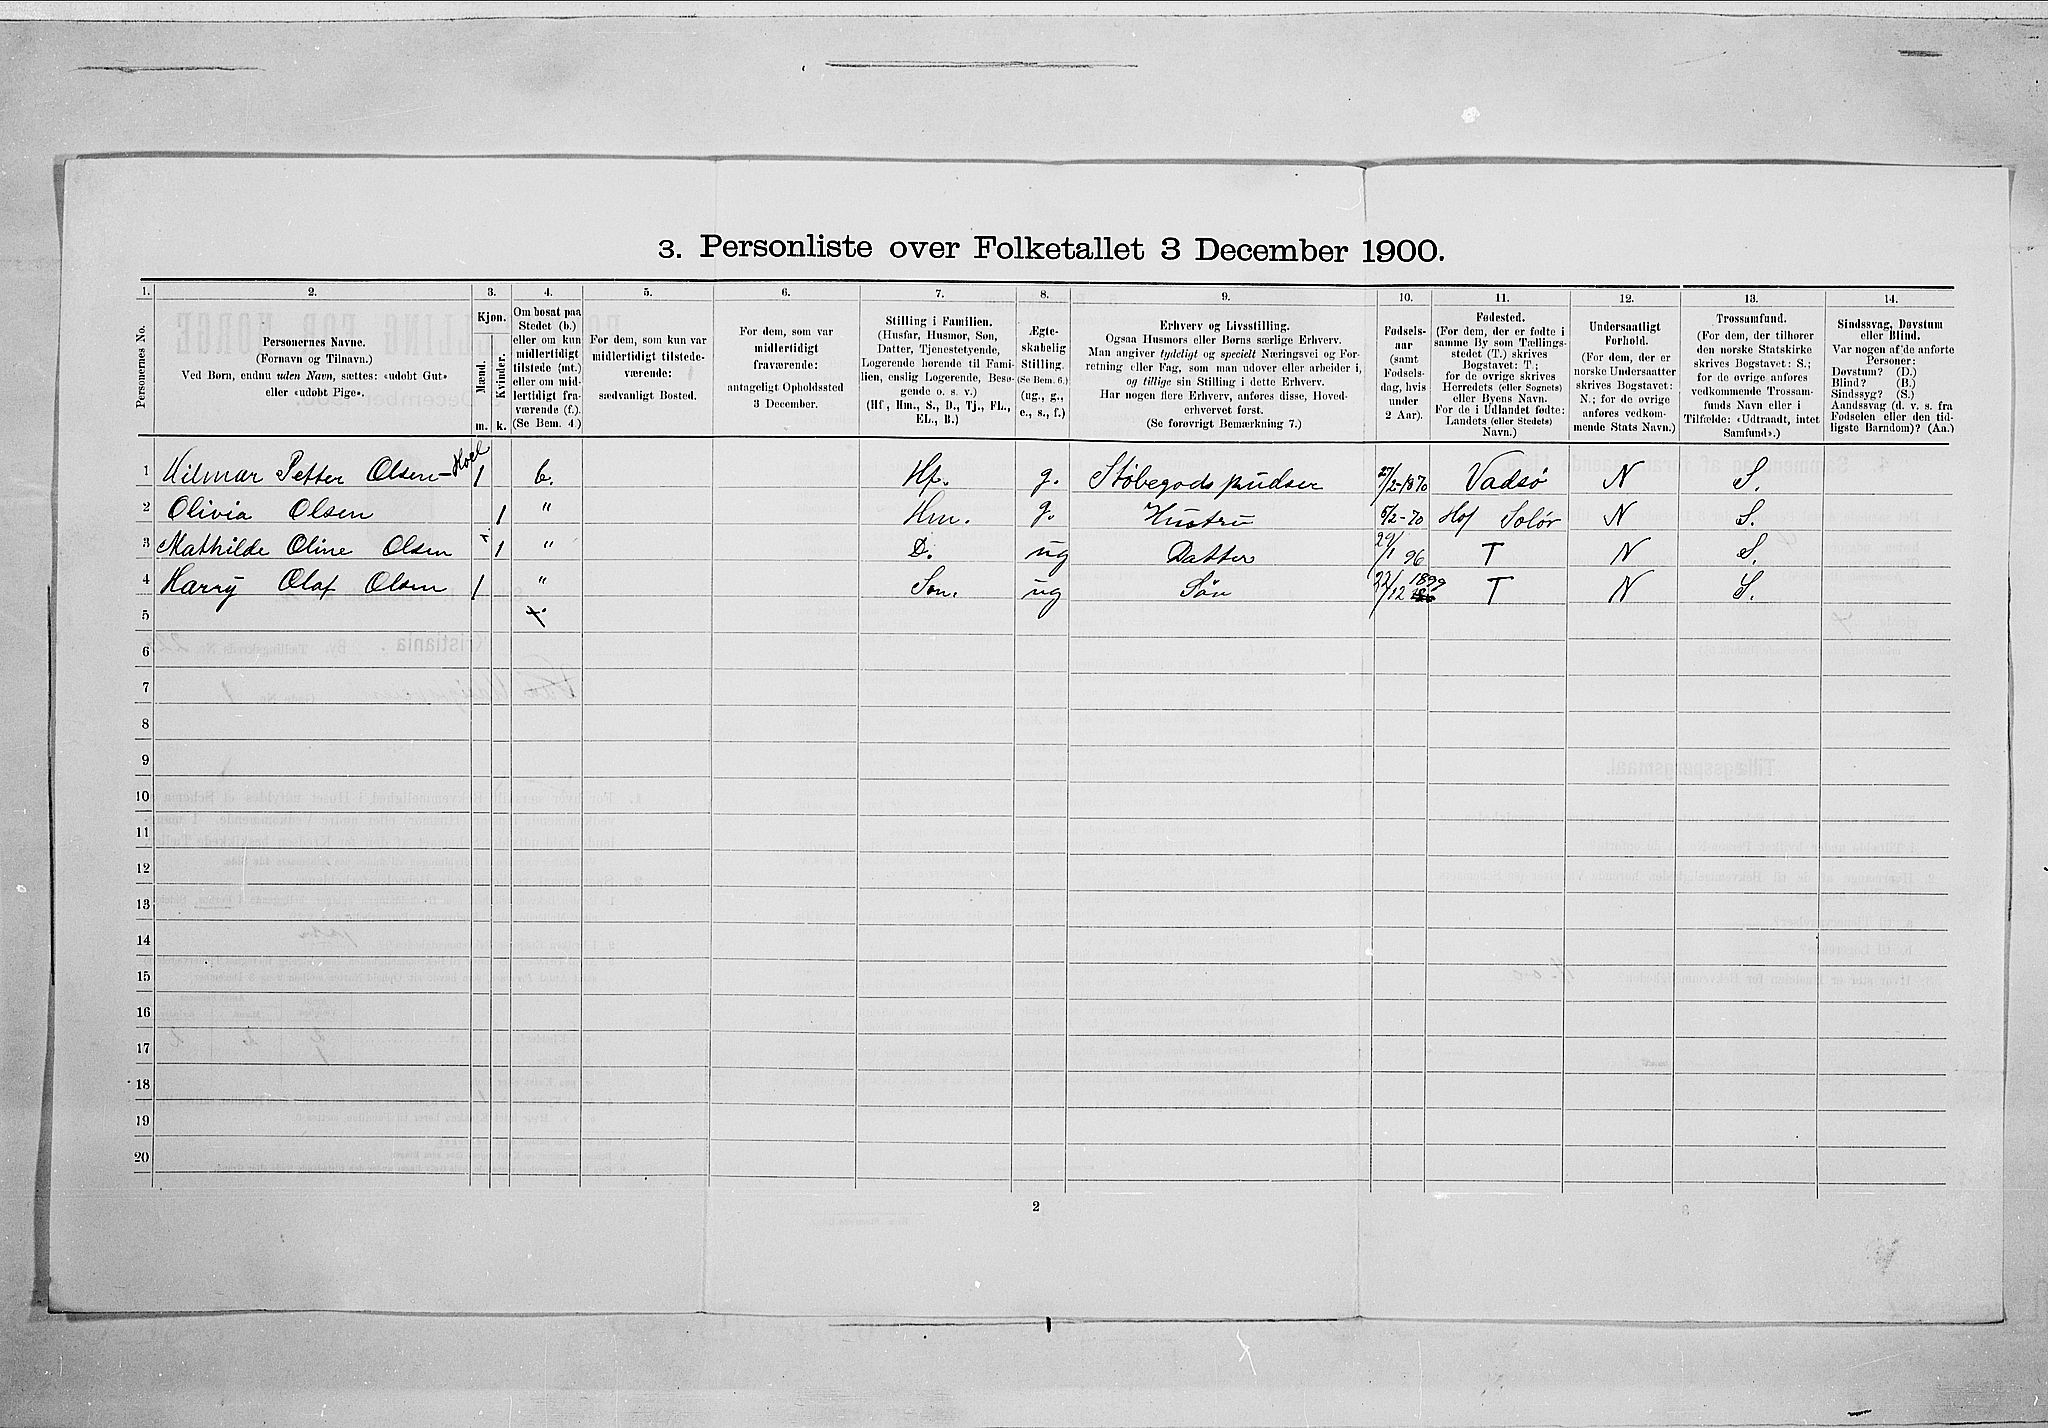 3. Personliste over Folketallet 3 December 1900.
1. 2. 3. 4. 5. 6. 7. 8. 9. 10. 11. 12. 13. 14.
Personernes No.
Personernes Navne.
(Fornavn og Tilnavn.)
Ved Børn, endnu uden Navn, sættes: «udøbt Gut»
eller «udøbt Pige».
Kjøn.
Mænd.
Kvinder.
m. k.
Om bosat paa
Stedet (b.)
eller om kun
midlertidigt
tilstede (mt.)
eller om mid-
lertidigt fra-
værende (f.).
(Se Bem. 4.)
For dem, som kun var
midlertidigt tilstede-
værende:
sædvanligt Bosted.
For dem, som var
midlertidigt
fraværende:
antageligt Opholdssted
3 December.
Stilling i Familien.
(Husfar, Husmor, Søn,
Datter, Tjenestetyende,
Logerende hørende til Fami-
lien, enslig Logerende, Besø-
gende o. s. v.)
(Hf., Hm., S., D., Tj., FL.,
EL., B.)
Ægte-
skabelig
Stilling.
(Se Bem. 6.)
(ug., g.,
e., s., f.)
Erhverv og Livsstilling.
Ogsaa Husmors eller Børns særlige Erhverv.
Man angiver tydeligt og specielt Næringsvei og For-
retning eller Fag, som man udøver eller arbeider i,
og tillige sin Stilling i dette Erhverv.
Har nogen flere Erhverv, anføres disse, Hoved-
erhvervet først.
(Se forøvrigt Bemærkning 7.)
Fødsels-
aar
(samt
Fødsels-
dag, hvis
under
2 Aar).
Fødested.
(For dem, der er fødte i
samme By som Tællings-
stedet (T.) skrives
Bogstavet: T;
for de øvrige skrives
Herredets (eller Sognets)
eller Byens Navn.
For de i Udlandet fødte:
Landets (eller Stedets)
Navn.)
Undersaatligt
Forhold.
(For dem, der er
norske Undersaatter
skrives Bogstavet:
N.; for de øvrige
anføres vedkom-
mende Stats Navn.)
Trossamfund.
(For dem, der tilhører
den norske Statskirke
skrives Bogstavet: S.;
for de øvrige anføres
vedkommende Trossam-
funds Navn eller i
Tilfælde: «Udtraadt, intet
Samfund».)
Sindssvag, Døvstum
eller Blind.
Var nogen af de anførte
Personer:
Døvstum? (D.)
Blind? (B.)
Sindssyg? (S.)
Aandssvag (d. v. s. fra
Fødselen eller den tid-
ligste Barndom)? (Aa.)
1 Hilmar Petter Olsen-Hoel 1 b. Hf. g. Støbegods pudser 27/2-1870 Vadsø N S.
2 Olivia Olsen 1 " Hm. g. Hustru 5/2-70 Hof Solør N S.
3 Mathilde Oline Olsen 1 " D. ug Datter 29/1 96 T N S.
4 Harry Olaf Olsen 1 " Søn. ug Søn 22/12 1899 T N S.
5
6
7
8
9
10
11
12
13
14
15
16
17
18
19
20
2